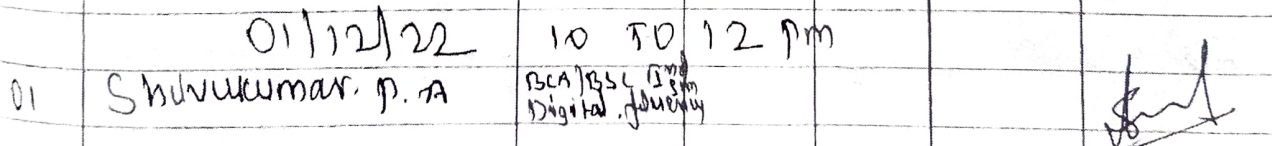 01/12/22 10 TO 12 pm
01 Shivukumar. P. A BCA/BSC Ind Sem
Digital fluency